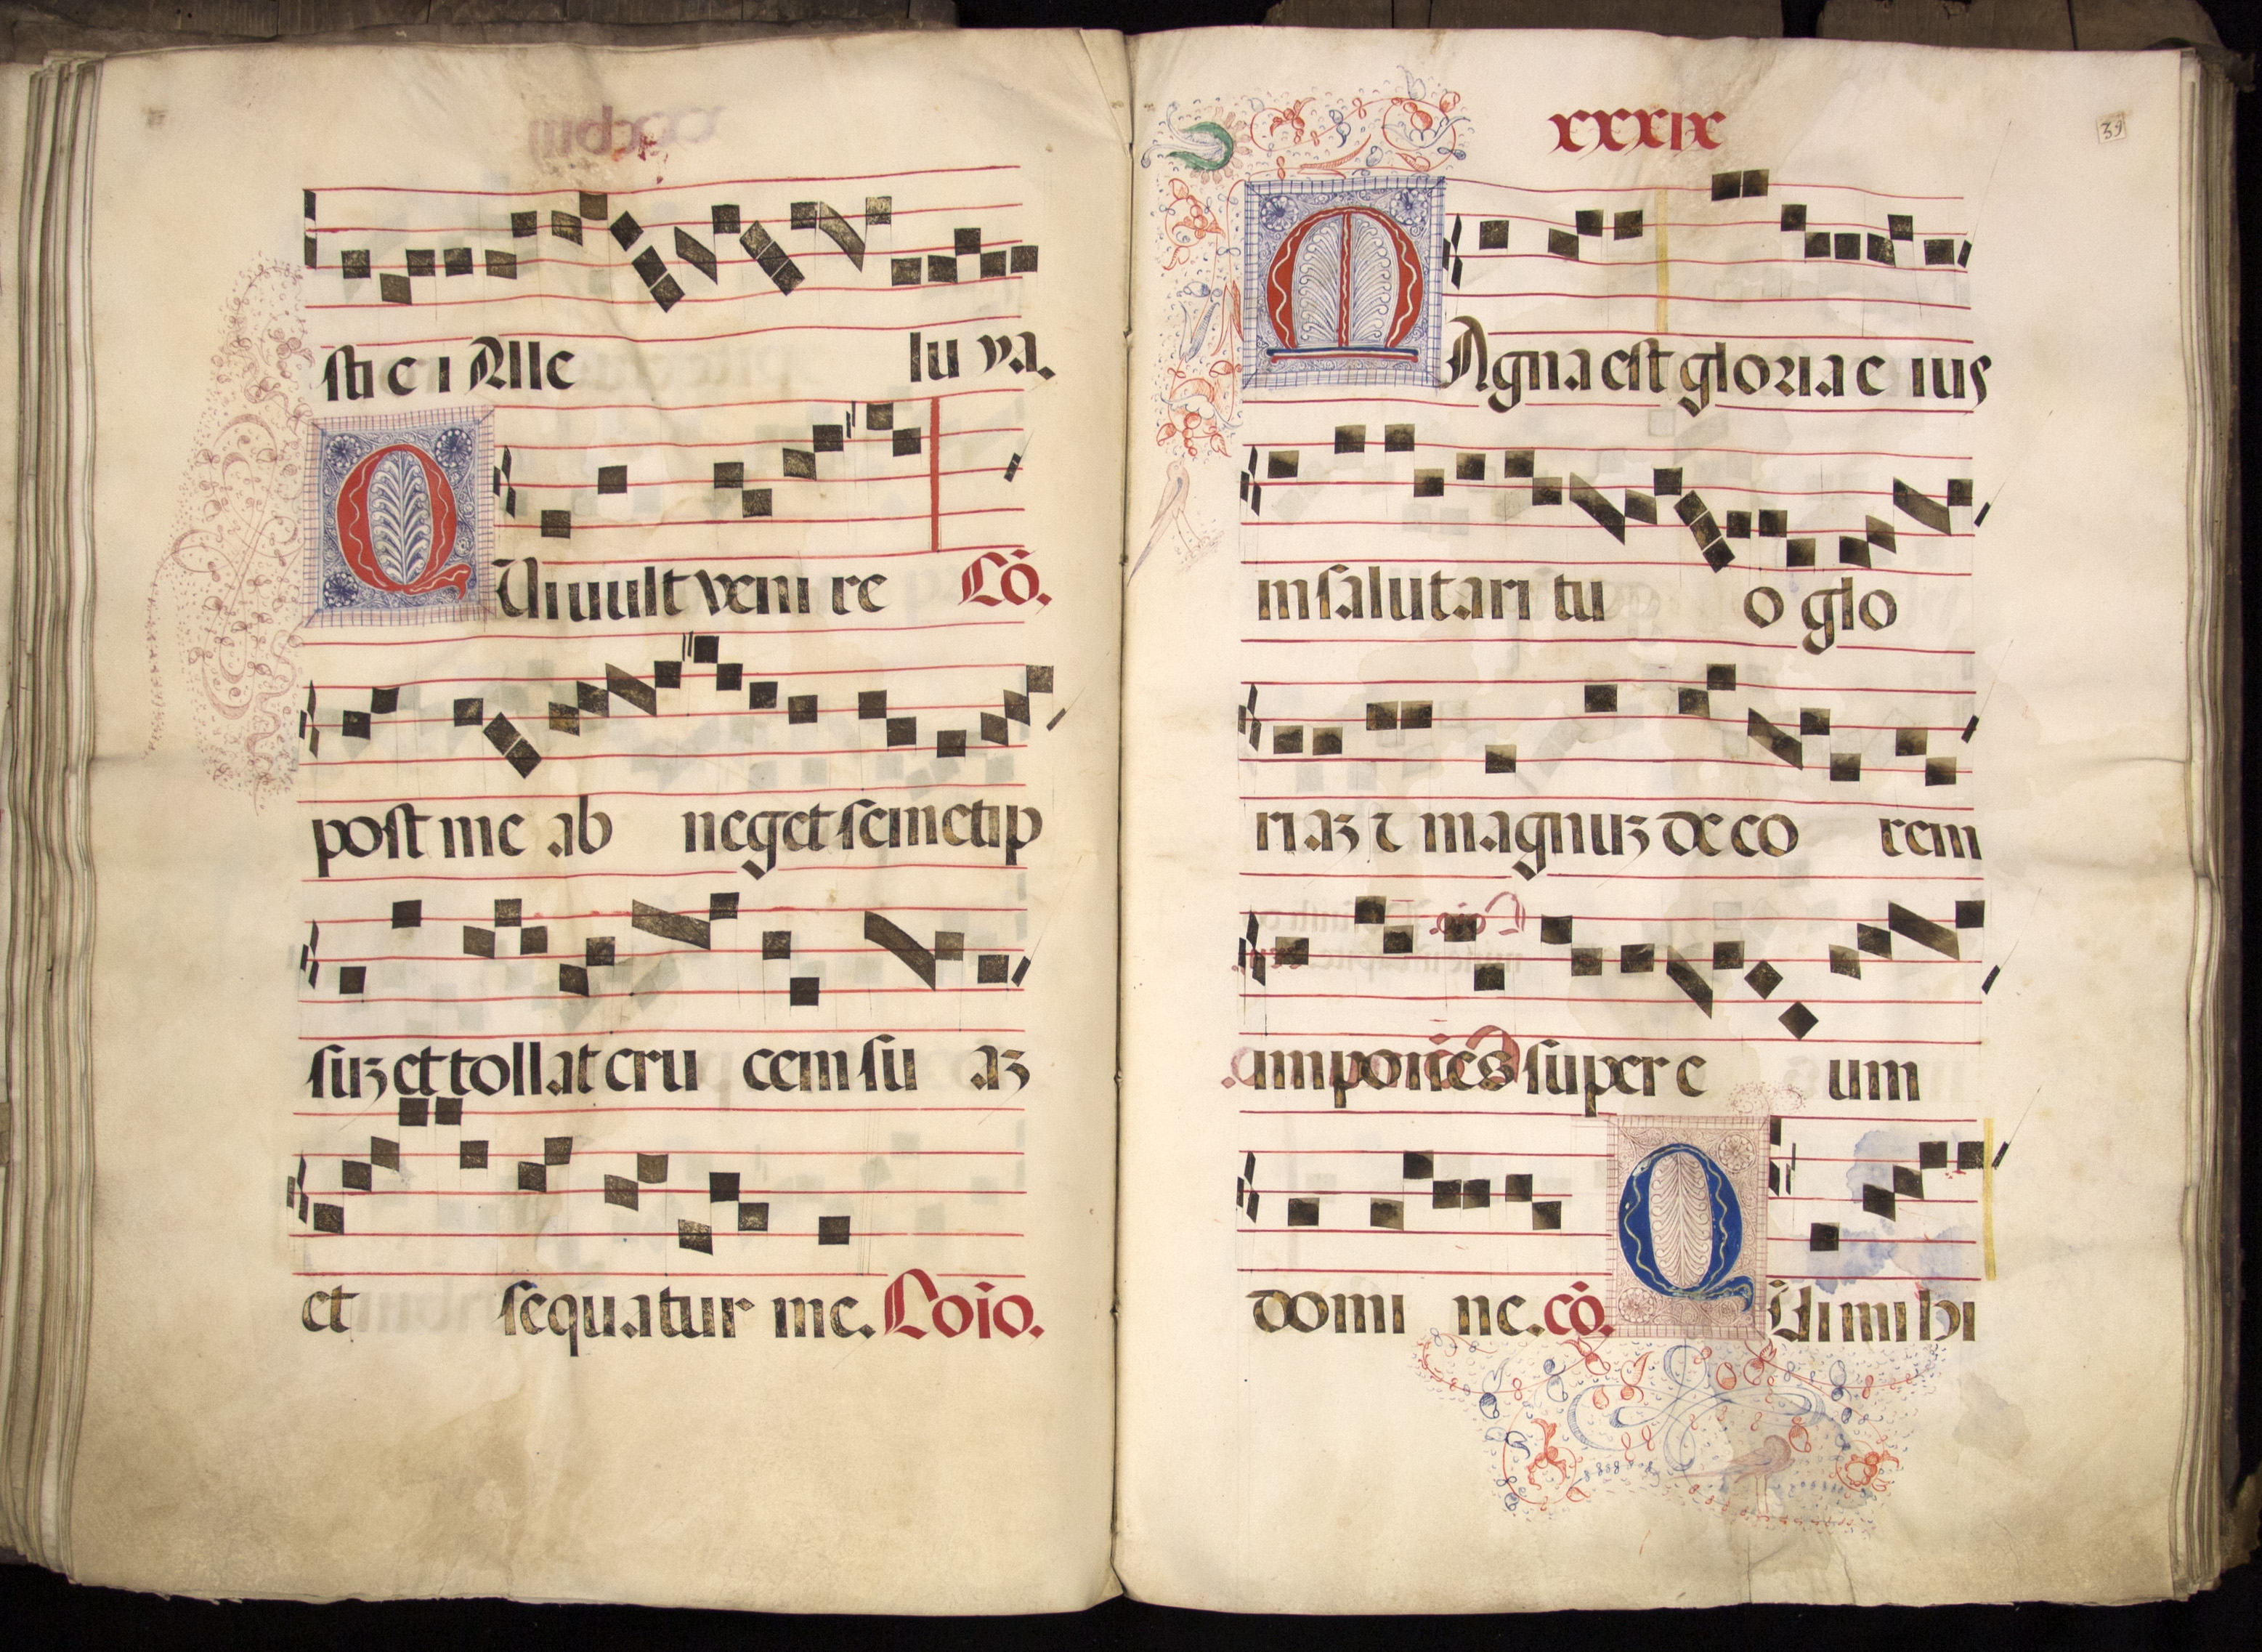 sti e i Alle lu ya.
QUi uult veni re Cō.
post me ab neget semetip
suȝ et tollat cru cem su aȝ
et sequatur me. Coīo.
xxxix
39
MAgna est gloria e ius
in salutari tu o glo
riaȝ ⁊ magnuȝ deco rem
impones super e um
domi ne. cō. QUi mi hi